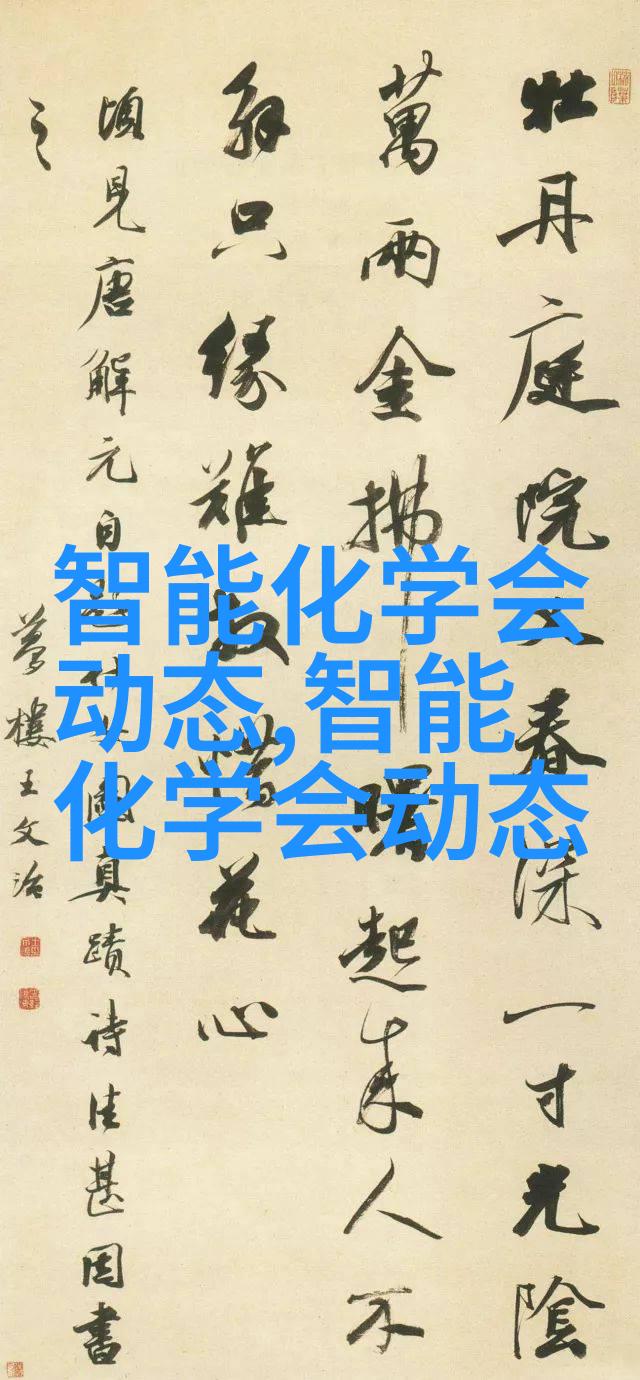 智能化学会
动态,智能
化学会动态
牡丹庭院又春深一寸光陰
萬兩金拂曙起來人不
解只緣難放惜花心
頃見唐解元自圖真蹟詩佳甚因書
之
夢樓王文治